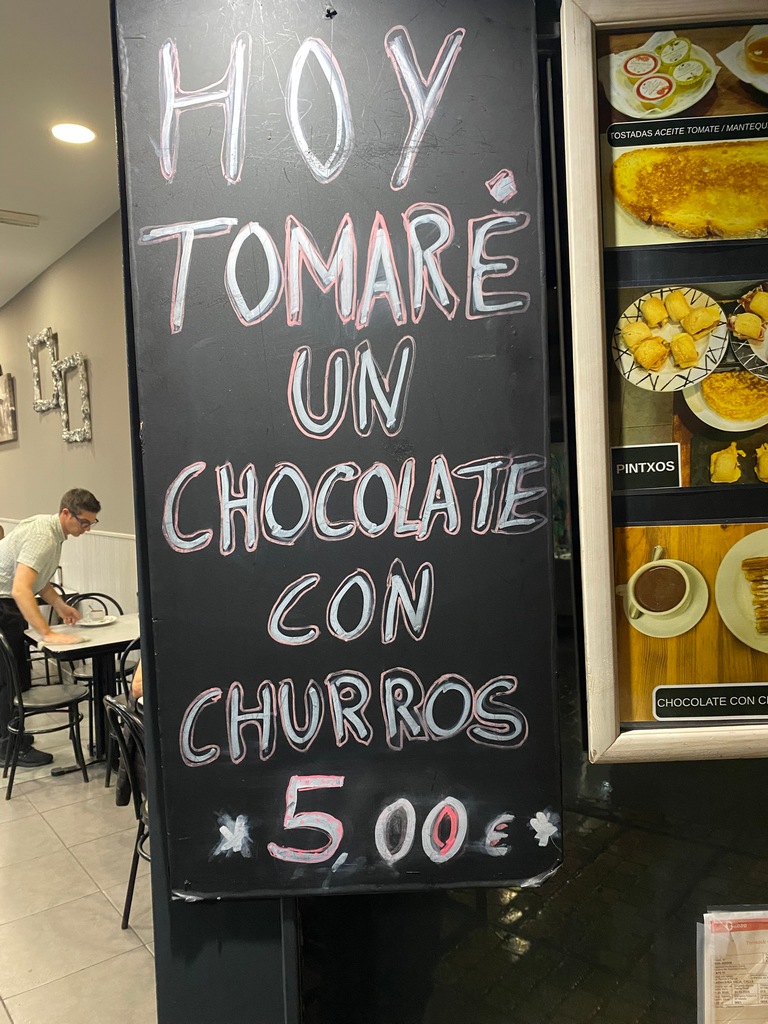 HOY
TOMARÉ
UN
CHOCOLATE
CON
CHURROS
* 5,00 € *
TOSTADAS ACEITE TOMATE / MANTEQU
PINTXOS
CHOCOLATE CON